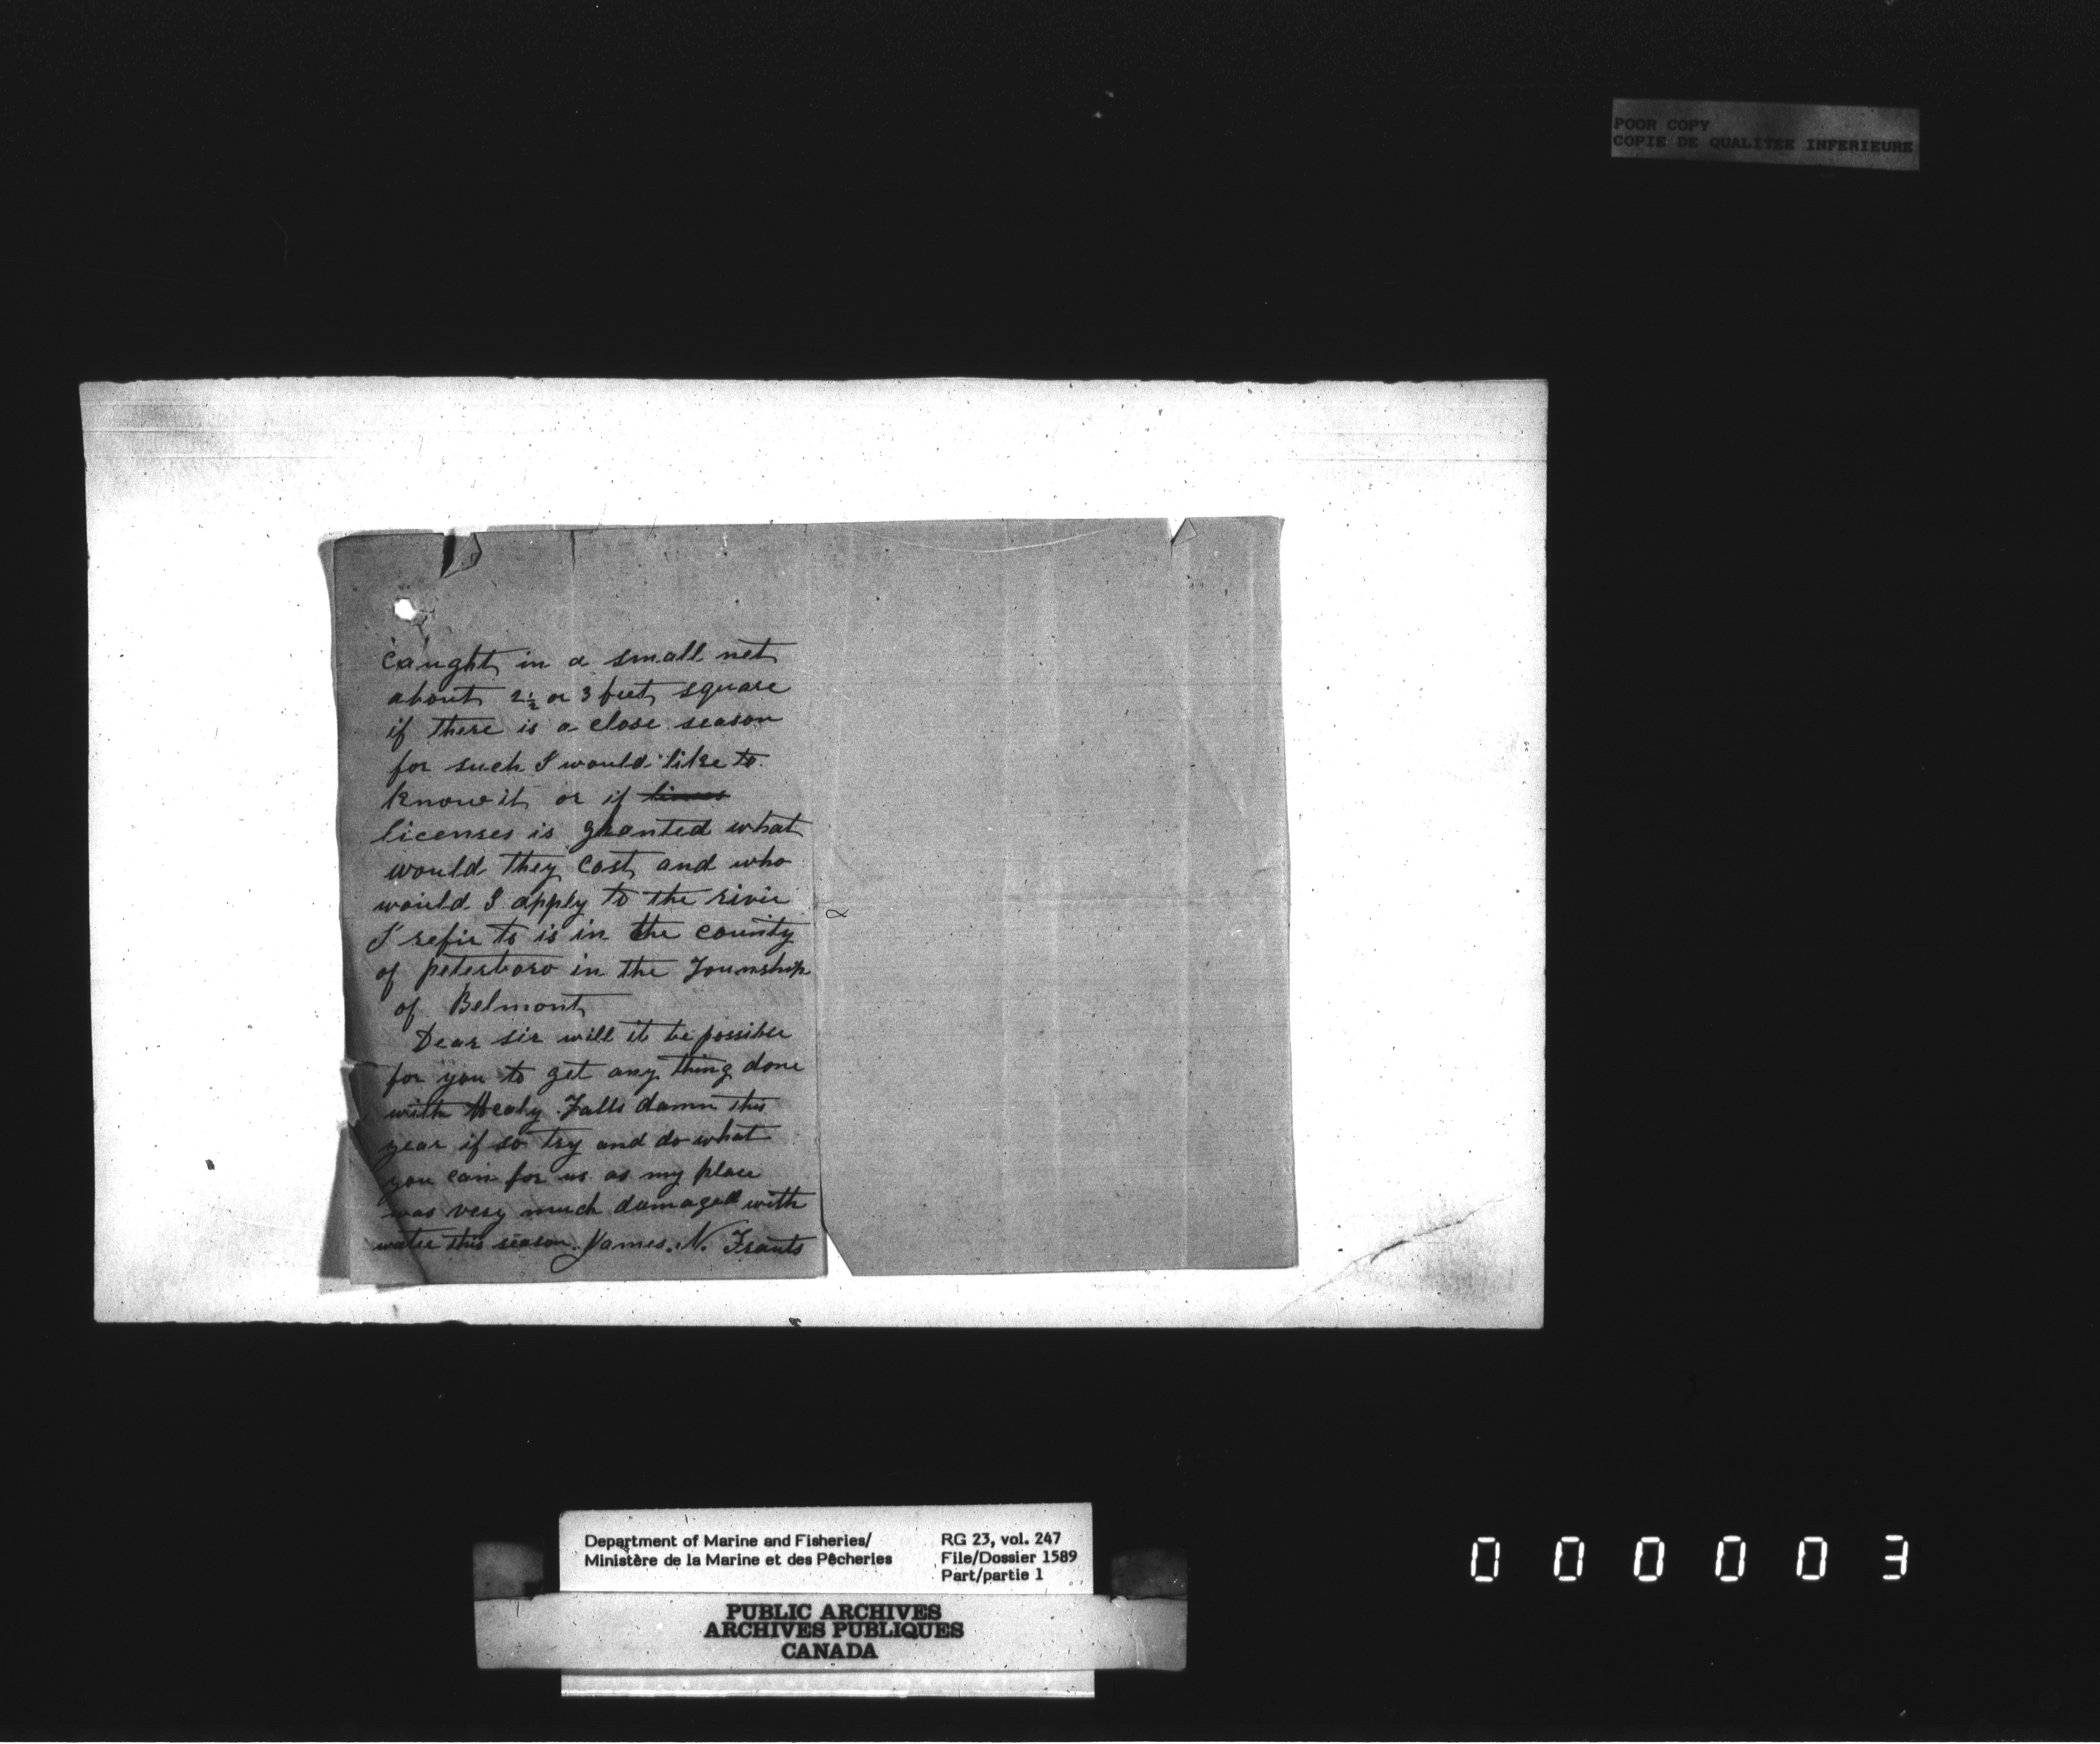 POOR COPY
COPIE DE QUALITEE INFERIEURE
caught in a small net
about 2½ or 3 feet square
if there is a close season
for such I would like to
know it or if
licenses is granted what
would they cost and who
would I apply to the river
I refer to is in the county
of peterboro in the Township
of Belmont
Dear sir will it be possible
for you to get any thing done
with Healy Falls damn this
year if so try and do what
you can for us as my place
was very much damaged with
water this season. James. N. Frants
Department of Marine and Fisheries/
Ministère de la Marine et des Pêcheries
RG 23, vol. 247
File/Dossier 1589
Part/partie 1
PUBLIC ARCHIVES
ARCHIVES PUBLIQUES
CANADA
000003